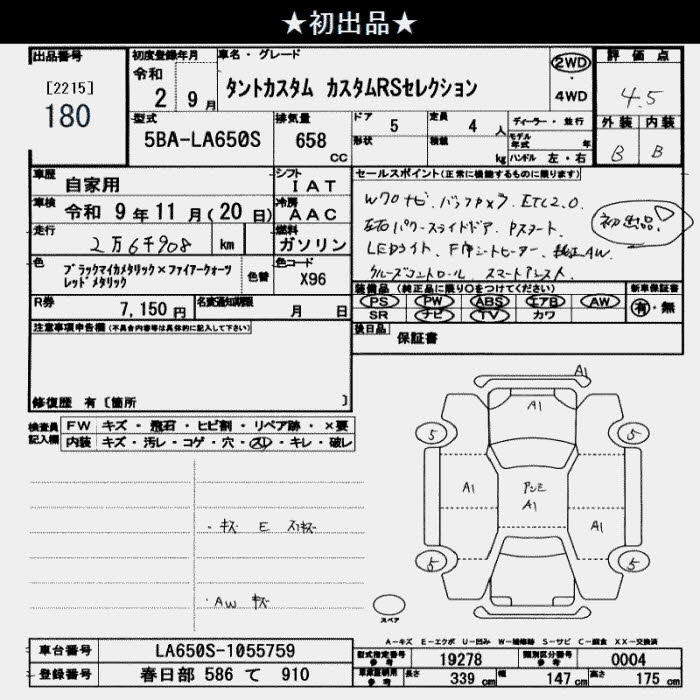 ★初出品★
出品番号
[2215]
180
初度登録年月
令和
2 9月
車名・グレード
タントカスタム カスタムRSセレクション
2WD
・
4WD
評価点
4.5
外装 内装
B B
型式
5BA-LA650S
排気量
658
CC
ドア
5
形状
定員
4
人
積載
kg
ディーラー・並行
モデル
年式 年
ハンドル 左・右
車歴
自家用
シフト
IAT
車検
令和 9年11月(20日)
冷房
AAC
走行
2万6千908 km
燃料
ガソリン
色
ブラックマイカメタリック×ファイアークォーツ
レッドメタリック
色替
色コード
X96
R券
7,150円
名変通知期限
月 日
セールスポイント(正常に機能するものに限ります)
Wフロナビ、バックカメラ、ETC2.0、
左右パワースライドドア、Pスタート、
LEDライト、F席シートヒーター、純正AW、
クルーズコントロール、スマートアシスト、
初出品
装備品(純正品に限り○をつけてください)
PS PW ABS エアB AW
SR ナビ TV カワ
新車保証書
有・無
後日品
保証書
注意事項申告欄(不具合内容等は具体的に記入して下さい)
修復歴 有〔箇所 〕
検査員
記入欄
FW キズ・飛石・ヒビ割・リペア跡・×要
内装 キズ・汚レ・コゲ・穴・スレ・キレ・破レ
・キズ E スリキズ
・AW キズ
A1
A1
5 5
A1
アンミ
A1
A1
5 5
スペア
A-キズ E-エクボ U-凹み W-補修跡 S-サビ C-腐食 XX-交換済
車台番号
LA650S-1055759
登録番号
春日部 586 て 910
型式指定番号
参考
19278
類別区分番号
参考
0004
車庫証明用
参考
長さ 339 cm 幅 147 cm 高さ 175 cm